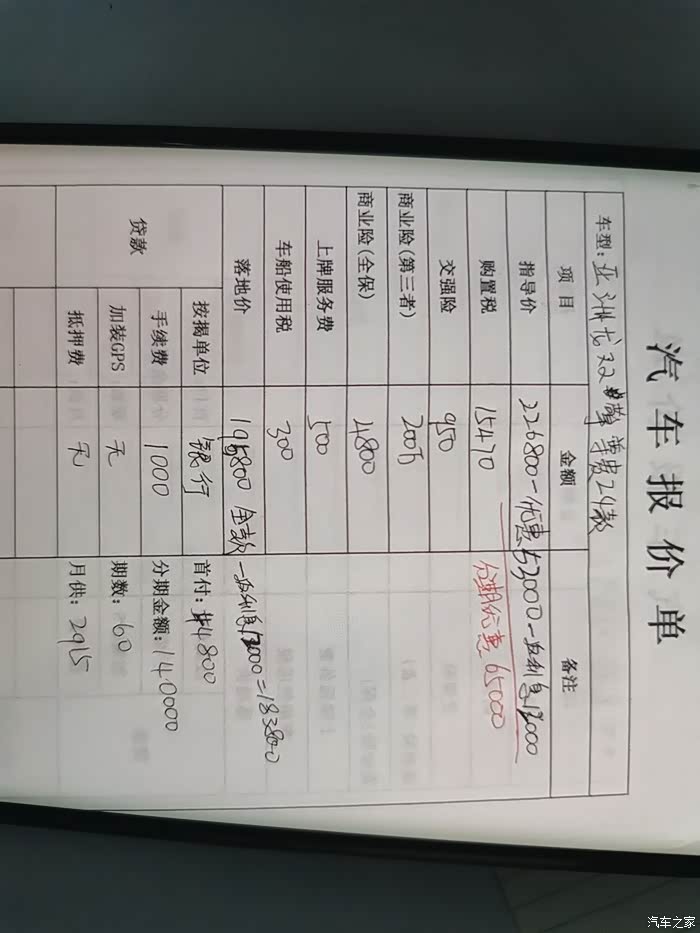 汽车报价单
车型：亚洲龙双擎尊贵24款
项目 金额 备注
指导价 226800-优惠53000-返利息12000
购置税 15470 分期优惠65000
交强险 950
商业险(第三者) 200万
商业险(全保) 4800
上牌服务费 500
车船使用税 300
落地价 195800 全款 -返利息12000=183800
贷款 按揭单位 银行 首付：44800
手续费 1000 分期金额：140000
加装GPS 无 期数：60
抵押费 无 月供：2915
汽车之家